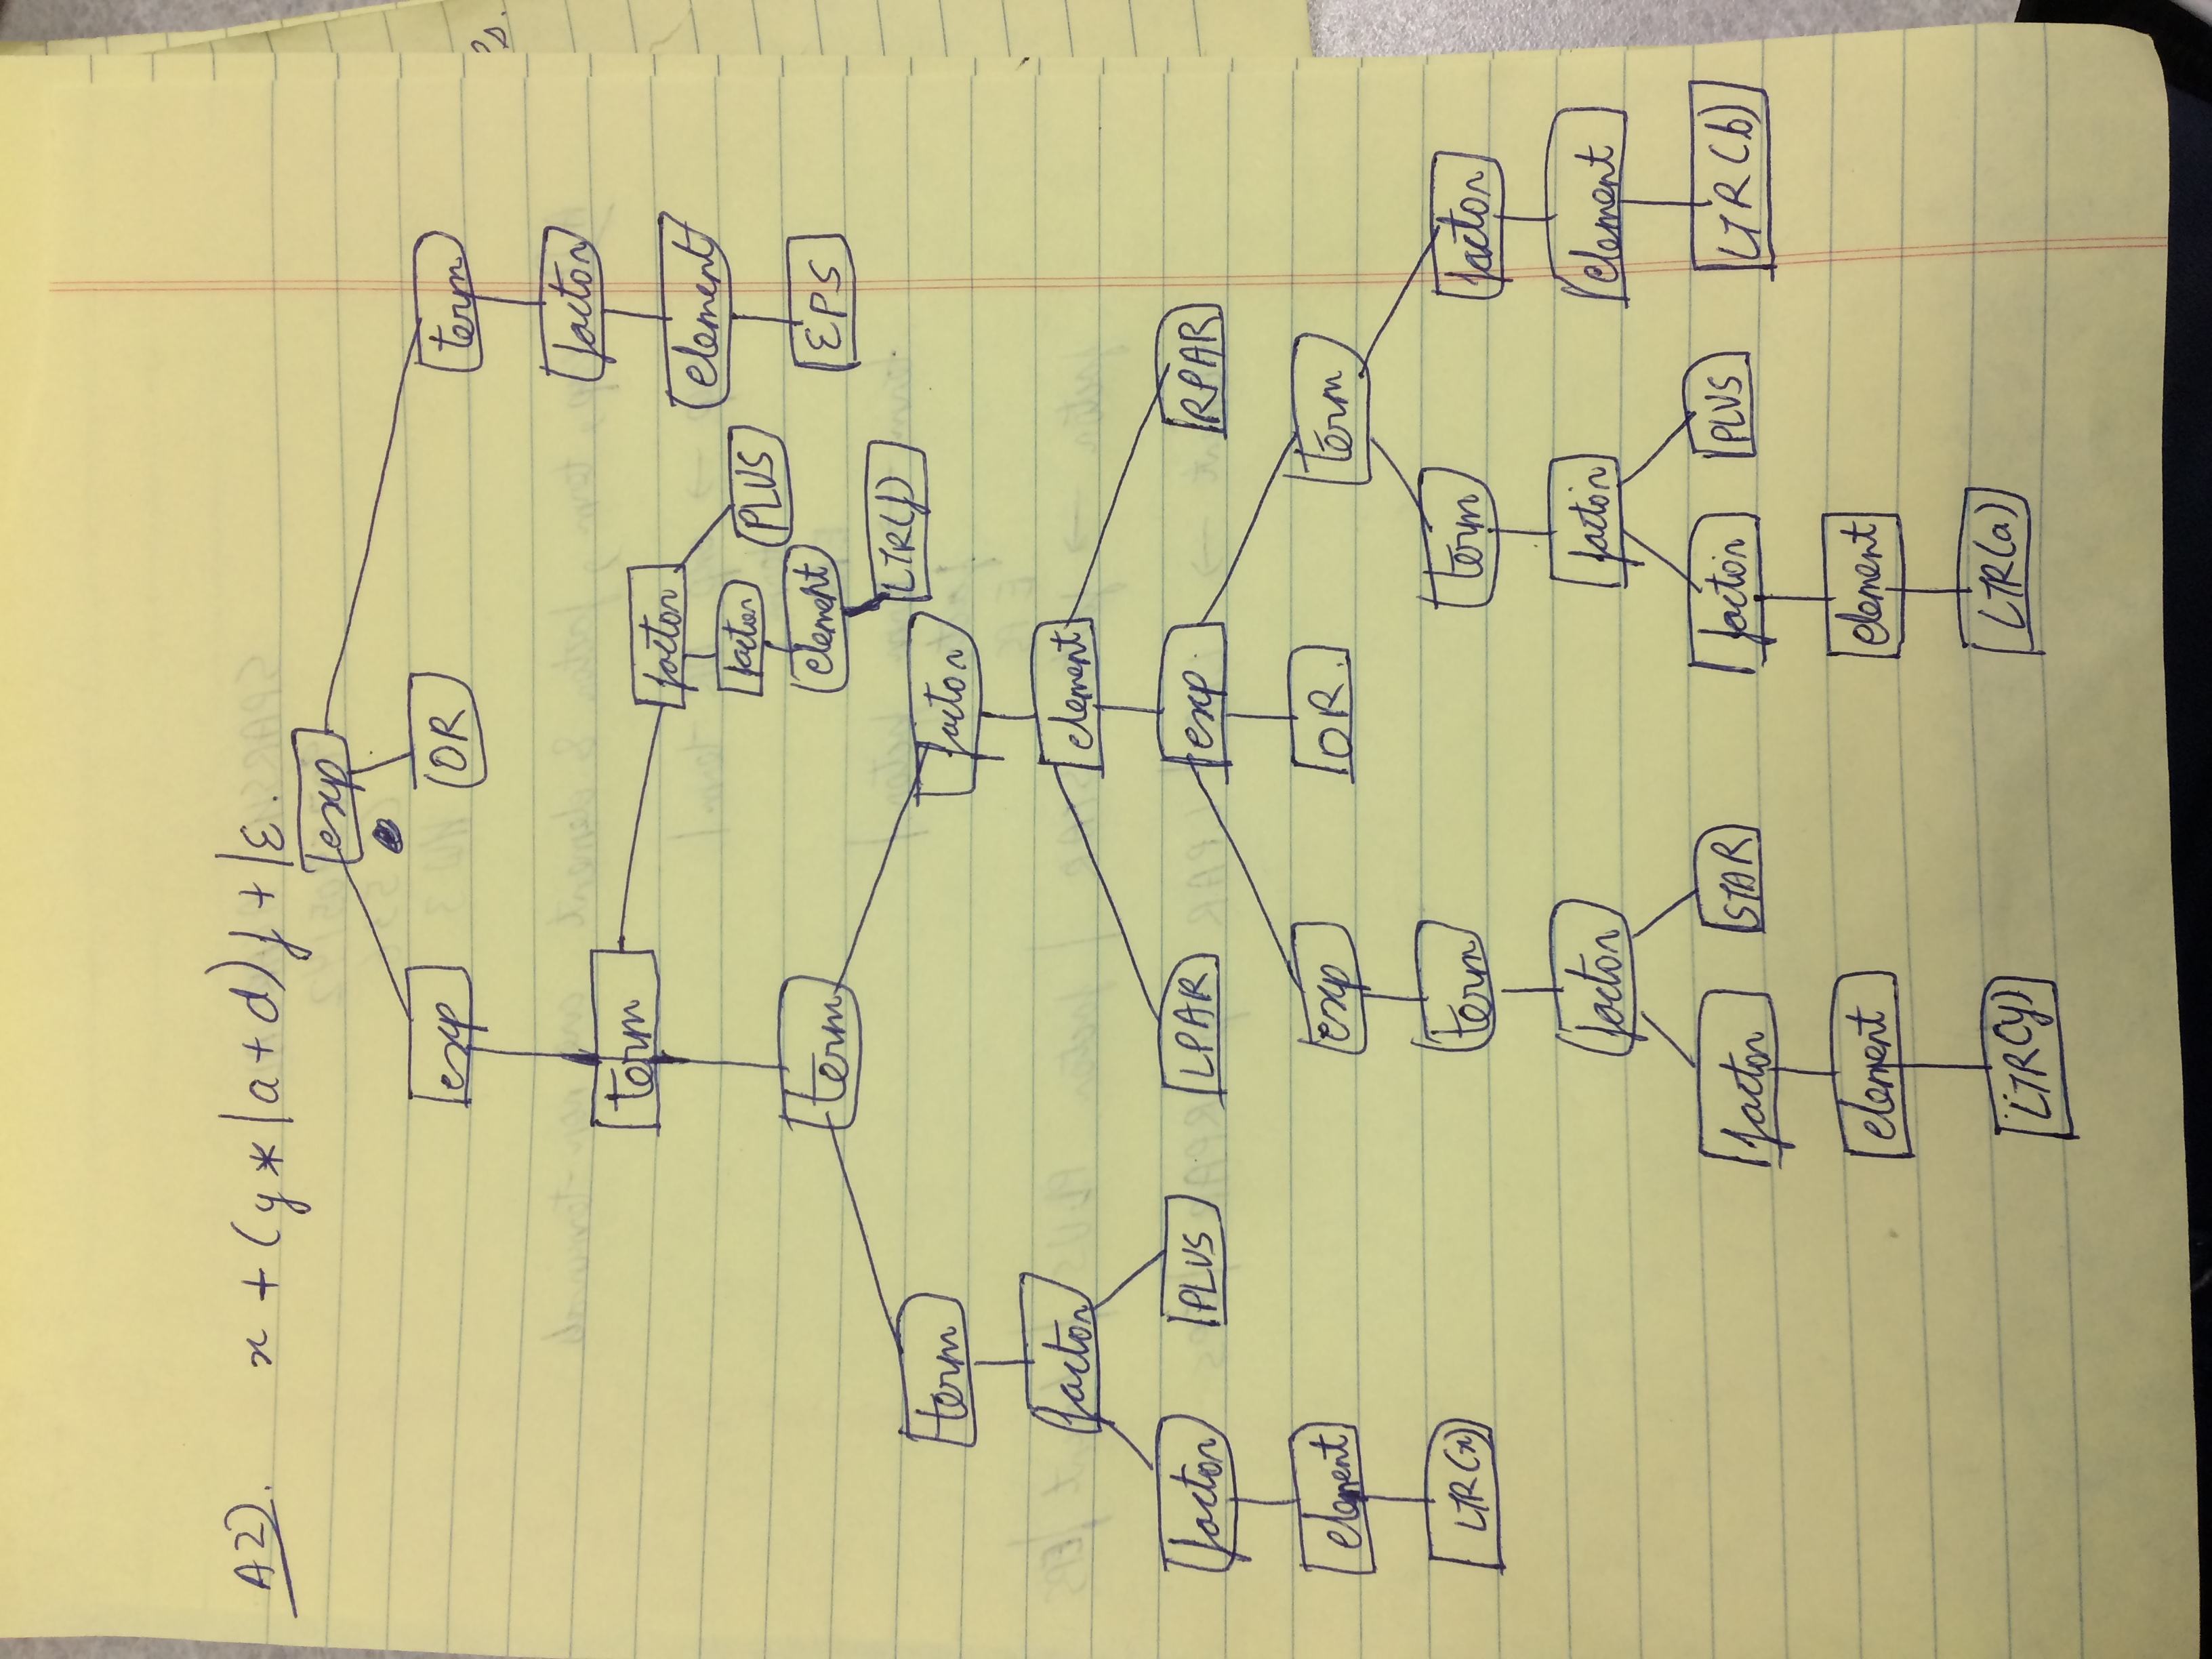 A2). x + (y * | a + d) f + | ε.
exp
exp OR term
factor
term factor
factor PLUS element
term element EPS
LTR(f)
term factor
factor element
factor PLUS LPAR exp RPAR
element exp OR. term
LTR(x) term term factor
factor factor element
factor STAR factor PLUS LTR(b)
element element
LTR(y) LTR(a)